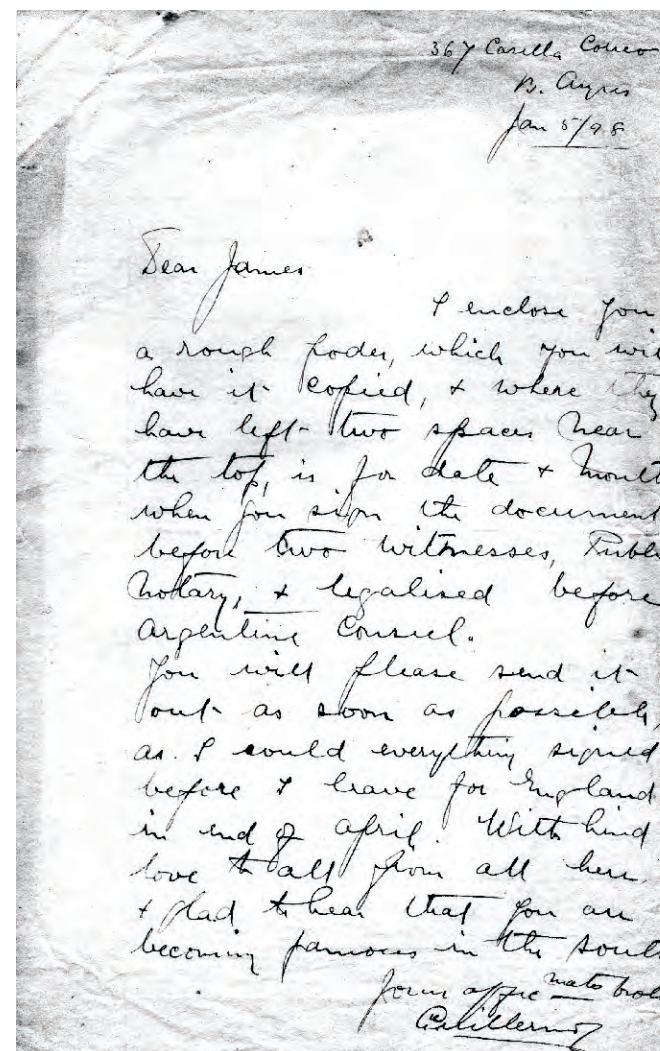 367 Casilla Correo
B. Ayres
Jan 5/98
Dear James
I enclose you
a rough poder, which you wil
have it copied, & where they
have left two spaces near
the top, is for date & Mont
when you sign the document
before two witnesses, Publi
Notary, & legalised before
Argentine Consul.
You will please send it
out as soon as possible,
as I could everything signed
before I leave for England
in end of April. With kind
love to all from all here
& glad to hear that you are
becoming famous in the South
Your affec mate brot
Guillermo